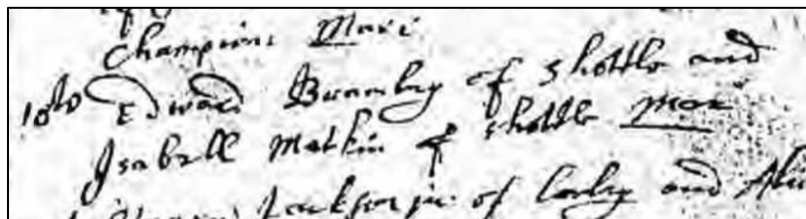 Champion Mari
10th Edward Brumby of Shottle and
Isabell Matkin of Shottle Mar
Jackson ju of and Ali